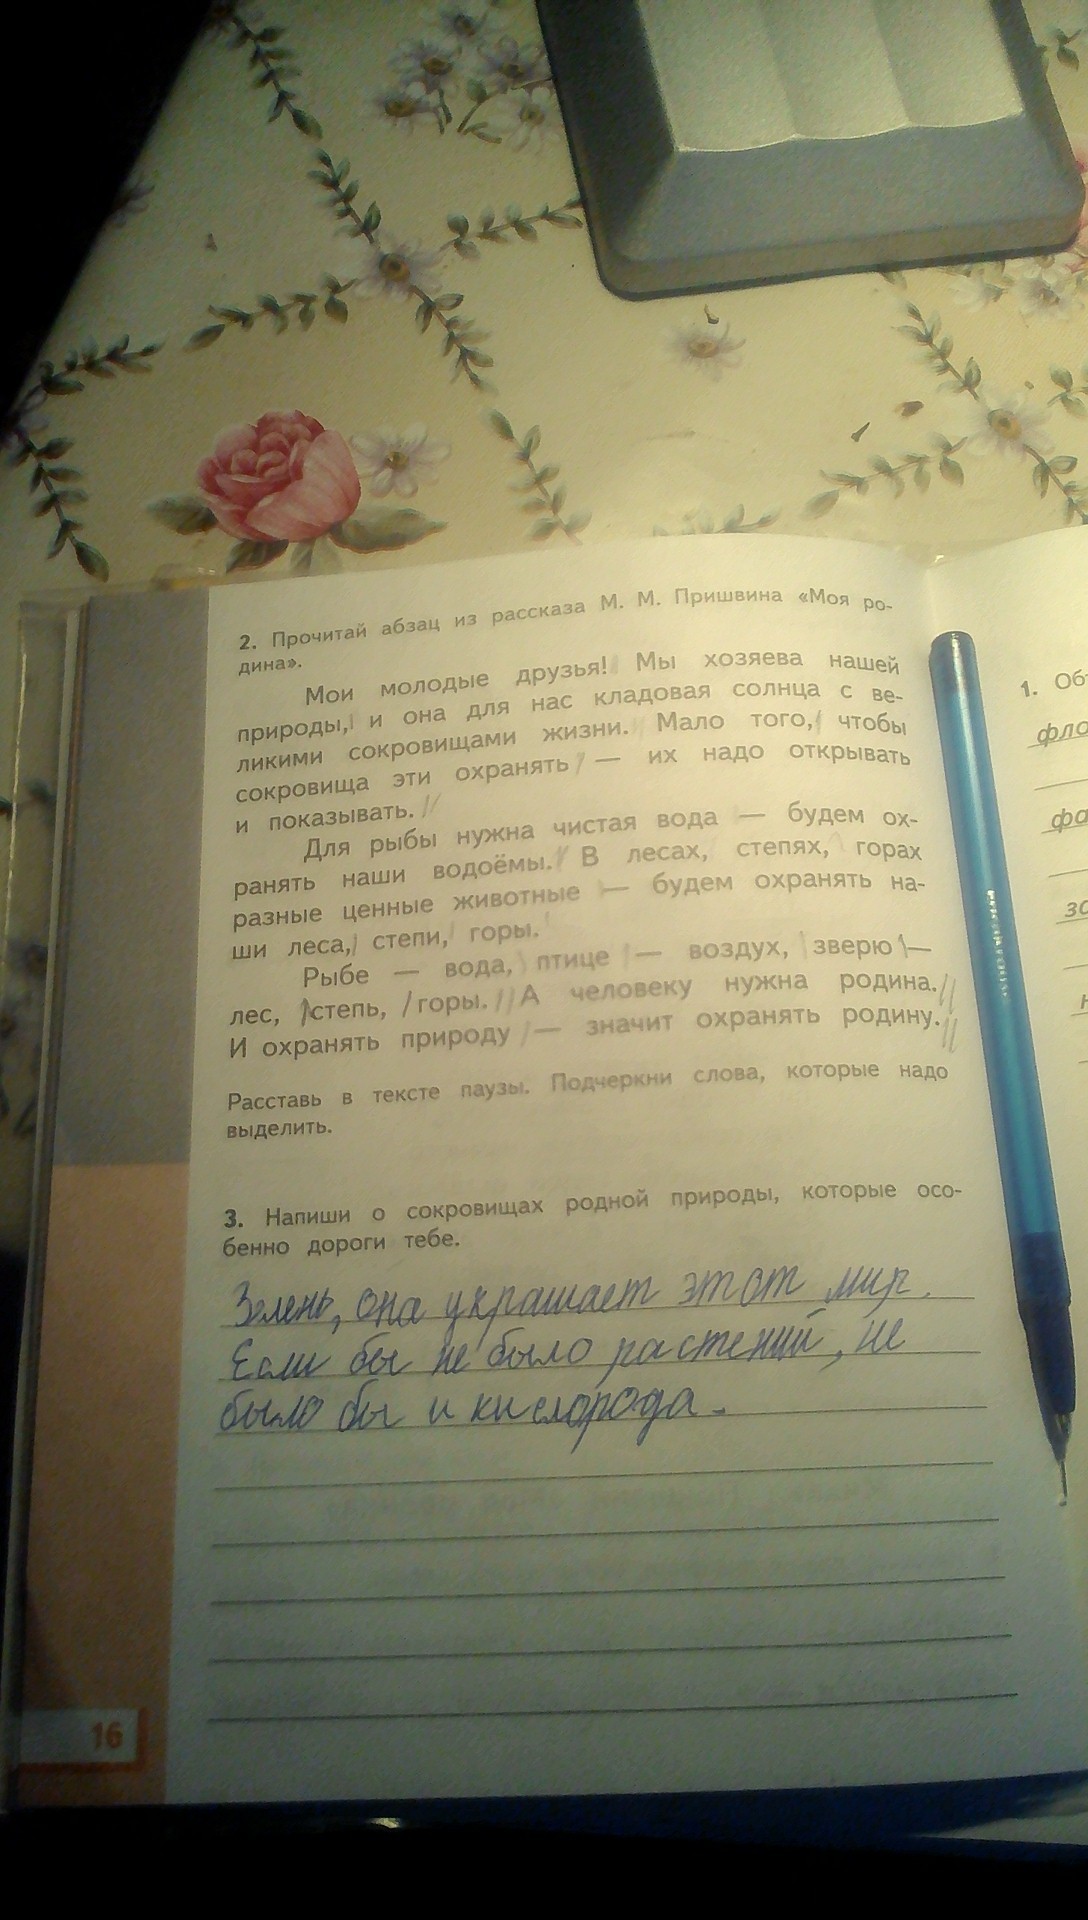 2. Прочитай абзац из рассказа М. М. Пришвина «Моя ро-
дина».
Мои молодые друзья! Мы хозяева нашей
природы, и она для нас кладовая солнца с ве-
ликими сокровищами жизни. Мало того, чтобы
сокровища эти охранять — их надо открывать
и показывать.
Для рыбы нужна чистая вода — будем ох-
ранять наши водоёмы. В лесах, степях, горах
разные ценные животные — будем охранять на-
ши леса, степи, горы.
Рыбе — вода, птице — воздух, зверю —
лес, степь, горы. А человеку нужна родина.
И охранять природу — значит охранять родину.
Расставь в тексте паузы. Подчеркни слова, которые надо
выделить.
3. Напиши о сокровищах родной природы, которые осо-
бенно дороги тебе.
Зелень, она украшает этот мир.
Если бы не было растений, не
было бы и кислорода.
16
1. Об
фло
фа